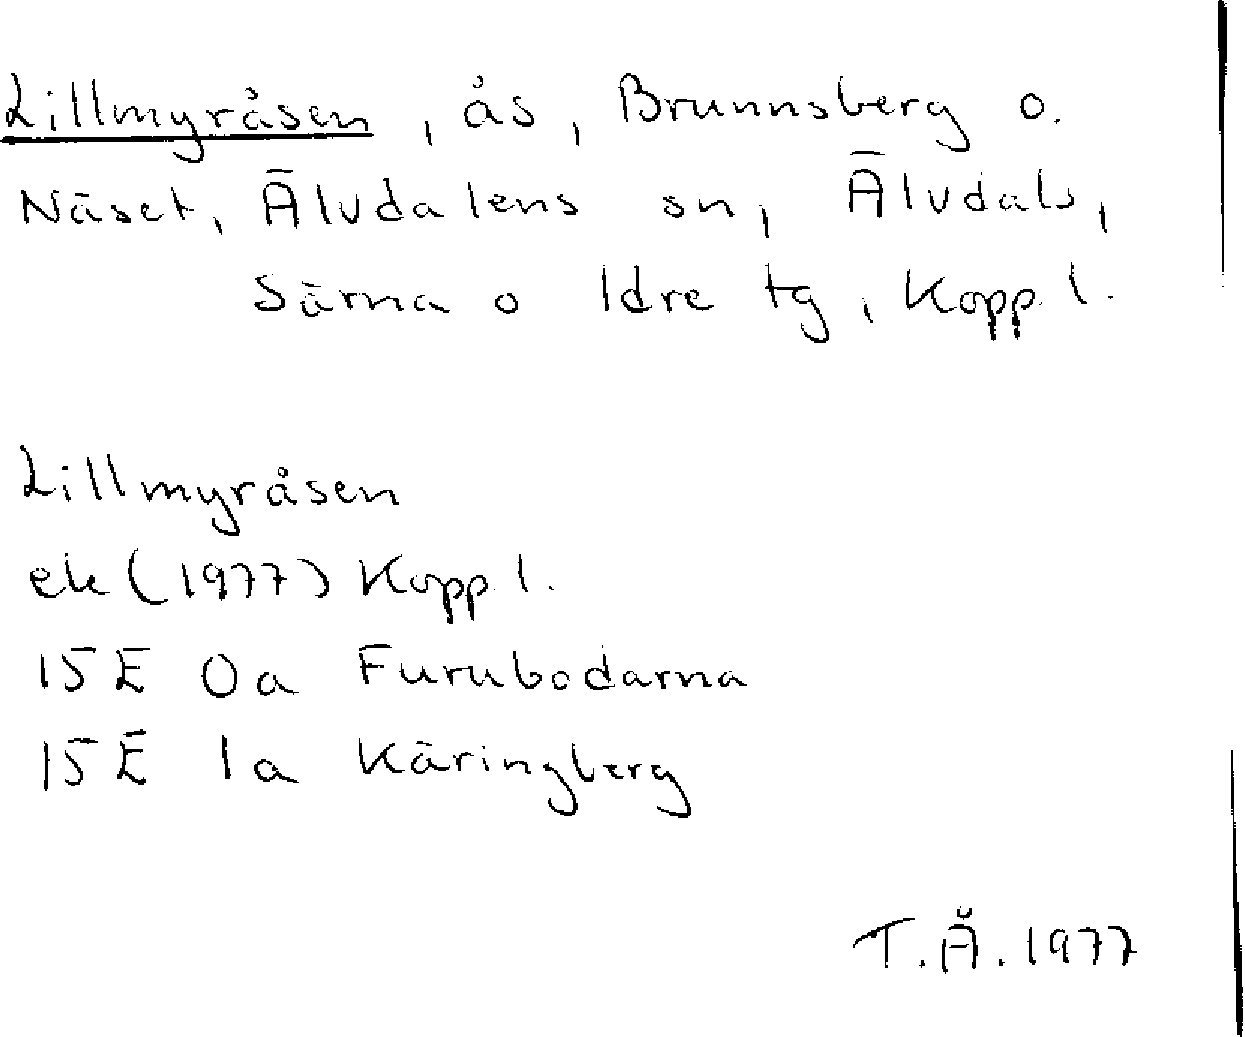 Lillmyråsen, ås, Brunnsberg o.
Näset, Älvdalens sn, Älvdals,
Särna o Idre tg, Kopp l.
Lillmyråsen
ek (1977) Kopp l.
15 E 0a Furubodarna
15 E 1a Käringberg
T.Å. 1977